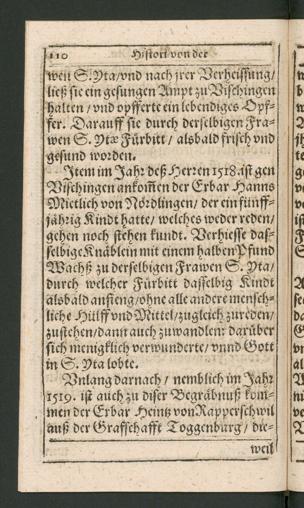 110 Histori von der
wen S. Yta/vnd nach jrer Verheissung/
ließ sie ein gesungen Ampt zu Vischingen
halten / vnd opfferte ein lebendiges Opf-
fer. Darauff sie durch derselbigen Fra-
wen S. Ytæ Fürbitt / alsbald frisch vnd
gesund worden.
Item im Jahr deß Herren 1518. ist gen
Vischingen ankom̃en der Erbar Hanns
Mietlich von Nördlingen, der ein fünff-
jährig Kindt hatte/ welches weder reden/
gehen noch stehen kundt. Verhiesse das-
selbige Knäblein mit einem halben Pfund
Wachß zu derselbigen Frawen S. Yta/
durch welcher Fürbitt dasselbig Kindt
alsbald anfieng/ohne alle andere mensch-
liche Hülff vnd Mittel/zugleich zu reden/
zu stehen/dann auch zu wandlen: darüber
sich menigklich verwunderte/ vnnd Gott
in S. Yta lobte.
Vnlang darnach / nemblich im Jahr
1519. ist auch zu diser Begräbnuß kom-
men der Erbar Heins von Rapperschwil
auß der Grafschafft Toggenburg / die-
weil